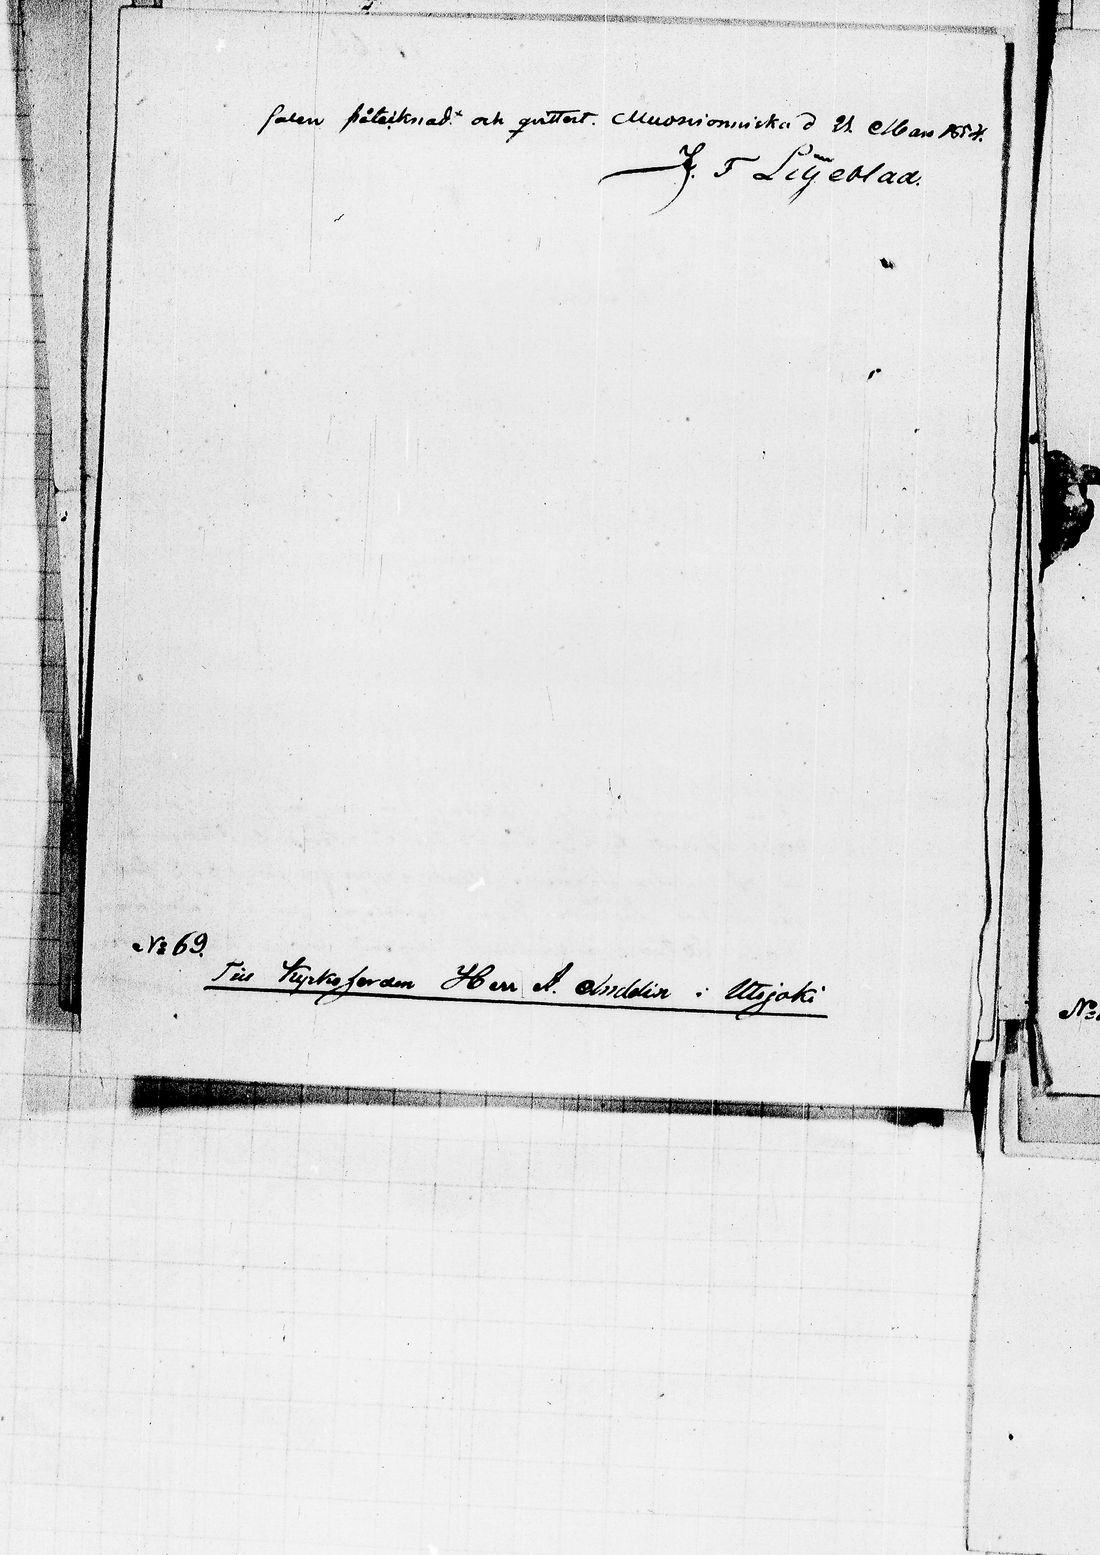 påteiknad. och quittert. Muonionniska d 21 Mars 1854.
J. F Liljeblad.
No 69.
Till Kyrkoherden Herr A. Andelin i Utsjoki
No